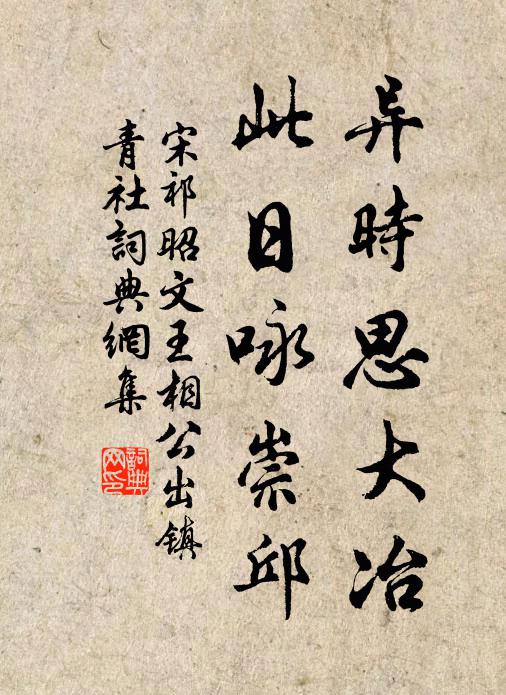 异時思大冶
此日咏崇邱
宋祁昭文王相公出鎮
青社詞典網集
詞典
网印